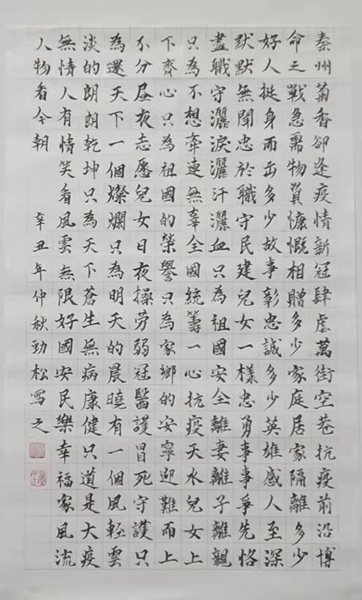 秦州菊香卻逢疫情新冠肆虐萬街空巷抗疫前沿博
命之戰急需物資慷慨相贈多少家庭居家隔離多少
好人挺身而出多少故事彰忠誠多少英雄感人至深
默默無聞忠於職守民建兒女一樣忠勇事事爭先恪
盡職守灑淚灑汗灑血只為祖國安全離妻離子離親
只為不想牽連無辜全國統籌一心抗疫天水兒女上
下齊心只為祖國的榮譽只為家鄉的安寧迎難而上
不分晝夜志愿兒女日夜操勞弱冠醫護冒死守護只
為還天下一個燦爛只為明天的晨曉有一個風輕雲
淡的朗朗乾坤只為天下蒼生無病康健只道是大疫
無情人有情笑看風雲無限好國安民樂幸福家風流
人物看今朝 辛丑年仲秋勁松寫之